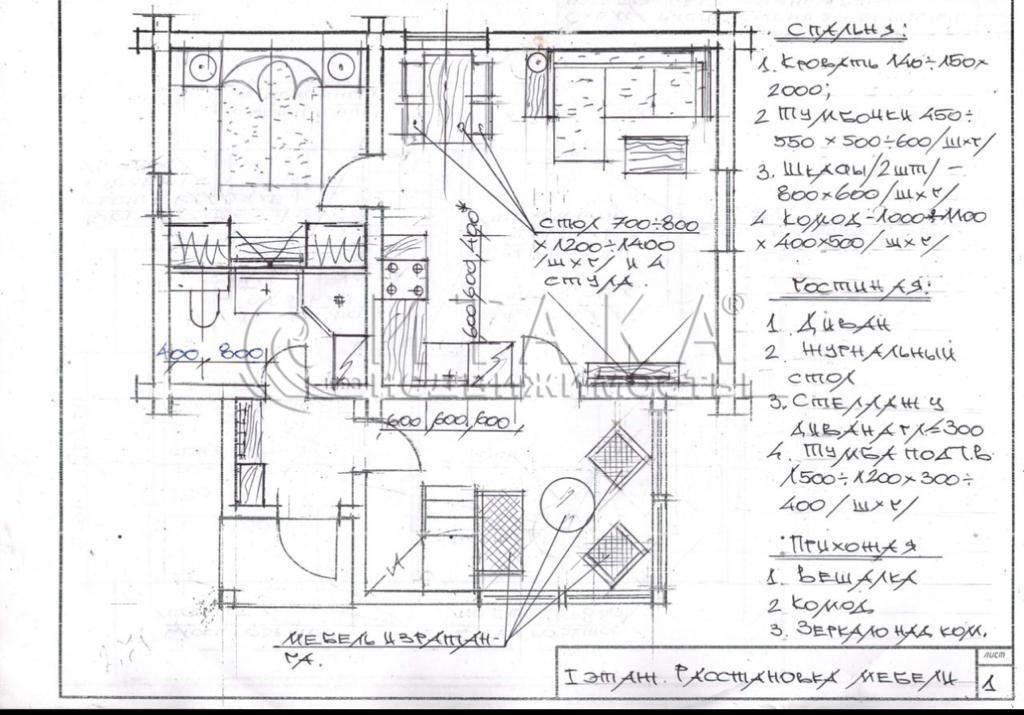 СПАЛЬНЯ:
1. КРОВАТЬ 140÷150×
2000;
2 ТУМБОЧКИ 450÷
550 × 500÷600/ШХГ/
3. ШКАФЫ/2ШТ/ –
800×600/ШХГ/
4. КОМОД-1000÷1100
× 400×500/ШХГ/
ГОСТИНАЯ:
1. ДИВАН
2. ЖУРНАЛЬНЫЙ
СТОЛ
3. СТЕЛЛАЖ У
ДИВАНА ГЛ=300
4. ТУМБА ПОД ТВ
1500÷1200×300÷
400/ШХГ/
ПРИХОЖАЯ
1. ВЕШАЛКА
2 КОМОД
3. ЗЕРКАЛО НАД КОМ.
СТОЛ 700÷800
× 1200÷1400
/ШХГ/ И 4
СТУЛА.
600,600,400*
400, 800
ИТАКА®
НЕДВИЖИМОСТЬ
600,600,600
МЕБЕЛЬ ИЗ РАТАН-
ГА.
I ЭТАЖ. РАССТАНОВКА МЕБЕЛИ
ЛИСТ
1